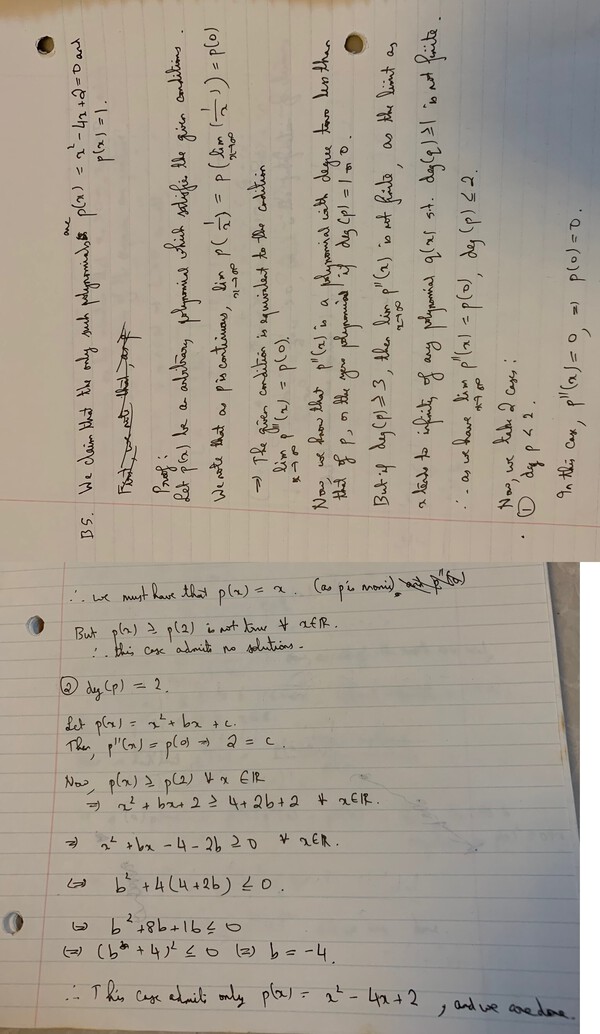 B5. We claim that the only such polynomials are p(x) = x² - 4x + 2 = 0 and
p(x) = 1.
Proof:
Let p(x) be an arbitrary polynomial which satisfies the given conditions.
We note that as p is continuous, lim_{x→∞} p(1/x) = p(lim_{x→∞} (1/x)) = p(0)
⇒ The given condition is equivalent to the condition
lim_{x→∞} p''(x) = p(0).
Now, we know that p''(x) is a polynomial with degree two less than
that of p, or the zero polynomial if deg(p) = 1 or 0.
But if deg(p) ≥ 3, then lim_{x→∞} p''(x) is not finite, as the limit as
x tends to infinity of any polynomial q(x) s.t. deg(q) ≥ 1 is not finite.
∴ as we have lim_{x→∞} p''(x) = p(0), deg(p) ≤ 2.
Now, we take 2 cases:
① deg p < 2.
In this case, p''(x) = 0, ⇒ p(0) = 0.
∴ we must have that p(x) = x. (as p is monic).
But p(x) ≥ p(2) is not true ∀ x∈ℝ.
∴ this case admits no solutions.
② deg(p) = 2.
Let p(x) = x² + bx + c.
Then, p''(x) = p(0) ⇒ 2 = c.
Now, p(x) ≥ p(2) ∀ x ∈ ℝ
⇒ x² + bx + 2 ≥ 4 + 2b + 2 ∀ x∈ℝ.
⇒ x² + bx - 4 - 2b ≥ 0 ∀ x∈ℝ.
⇔ b² + 4(4 + 2b) ≤ 0.
⇔ b² + 8b + 16 ≤ 0
⇔ (b + 4)² ≤ 0 ⇔ b = -4.
∴ This case admits only p(x) = x² - 4x + 2, and we are done.